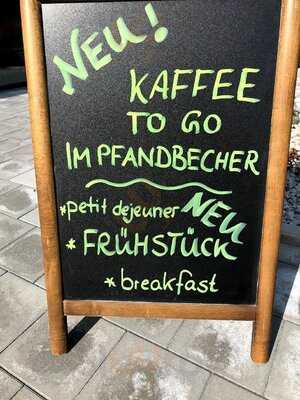 NEU!
KAFFEE
TO GO
IM PFANDBECHER
*petit dejeuner NEU
* FRÜHSTÜCK
* breakfast